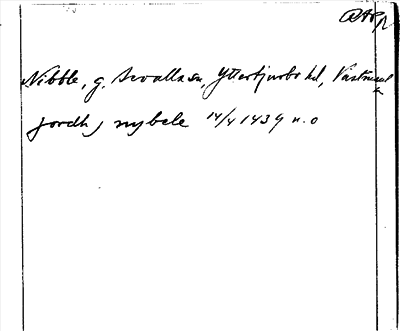 DAp
Nibble, g. Sevalla sn, Yttertjurbo hd, Västmanl
jordh, nybele 14/4 1439 n. o